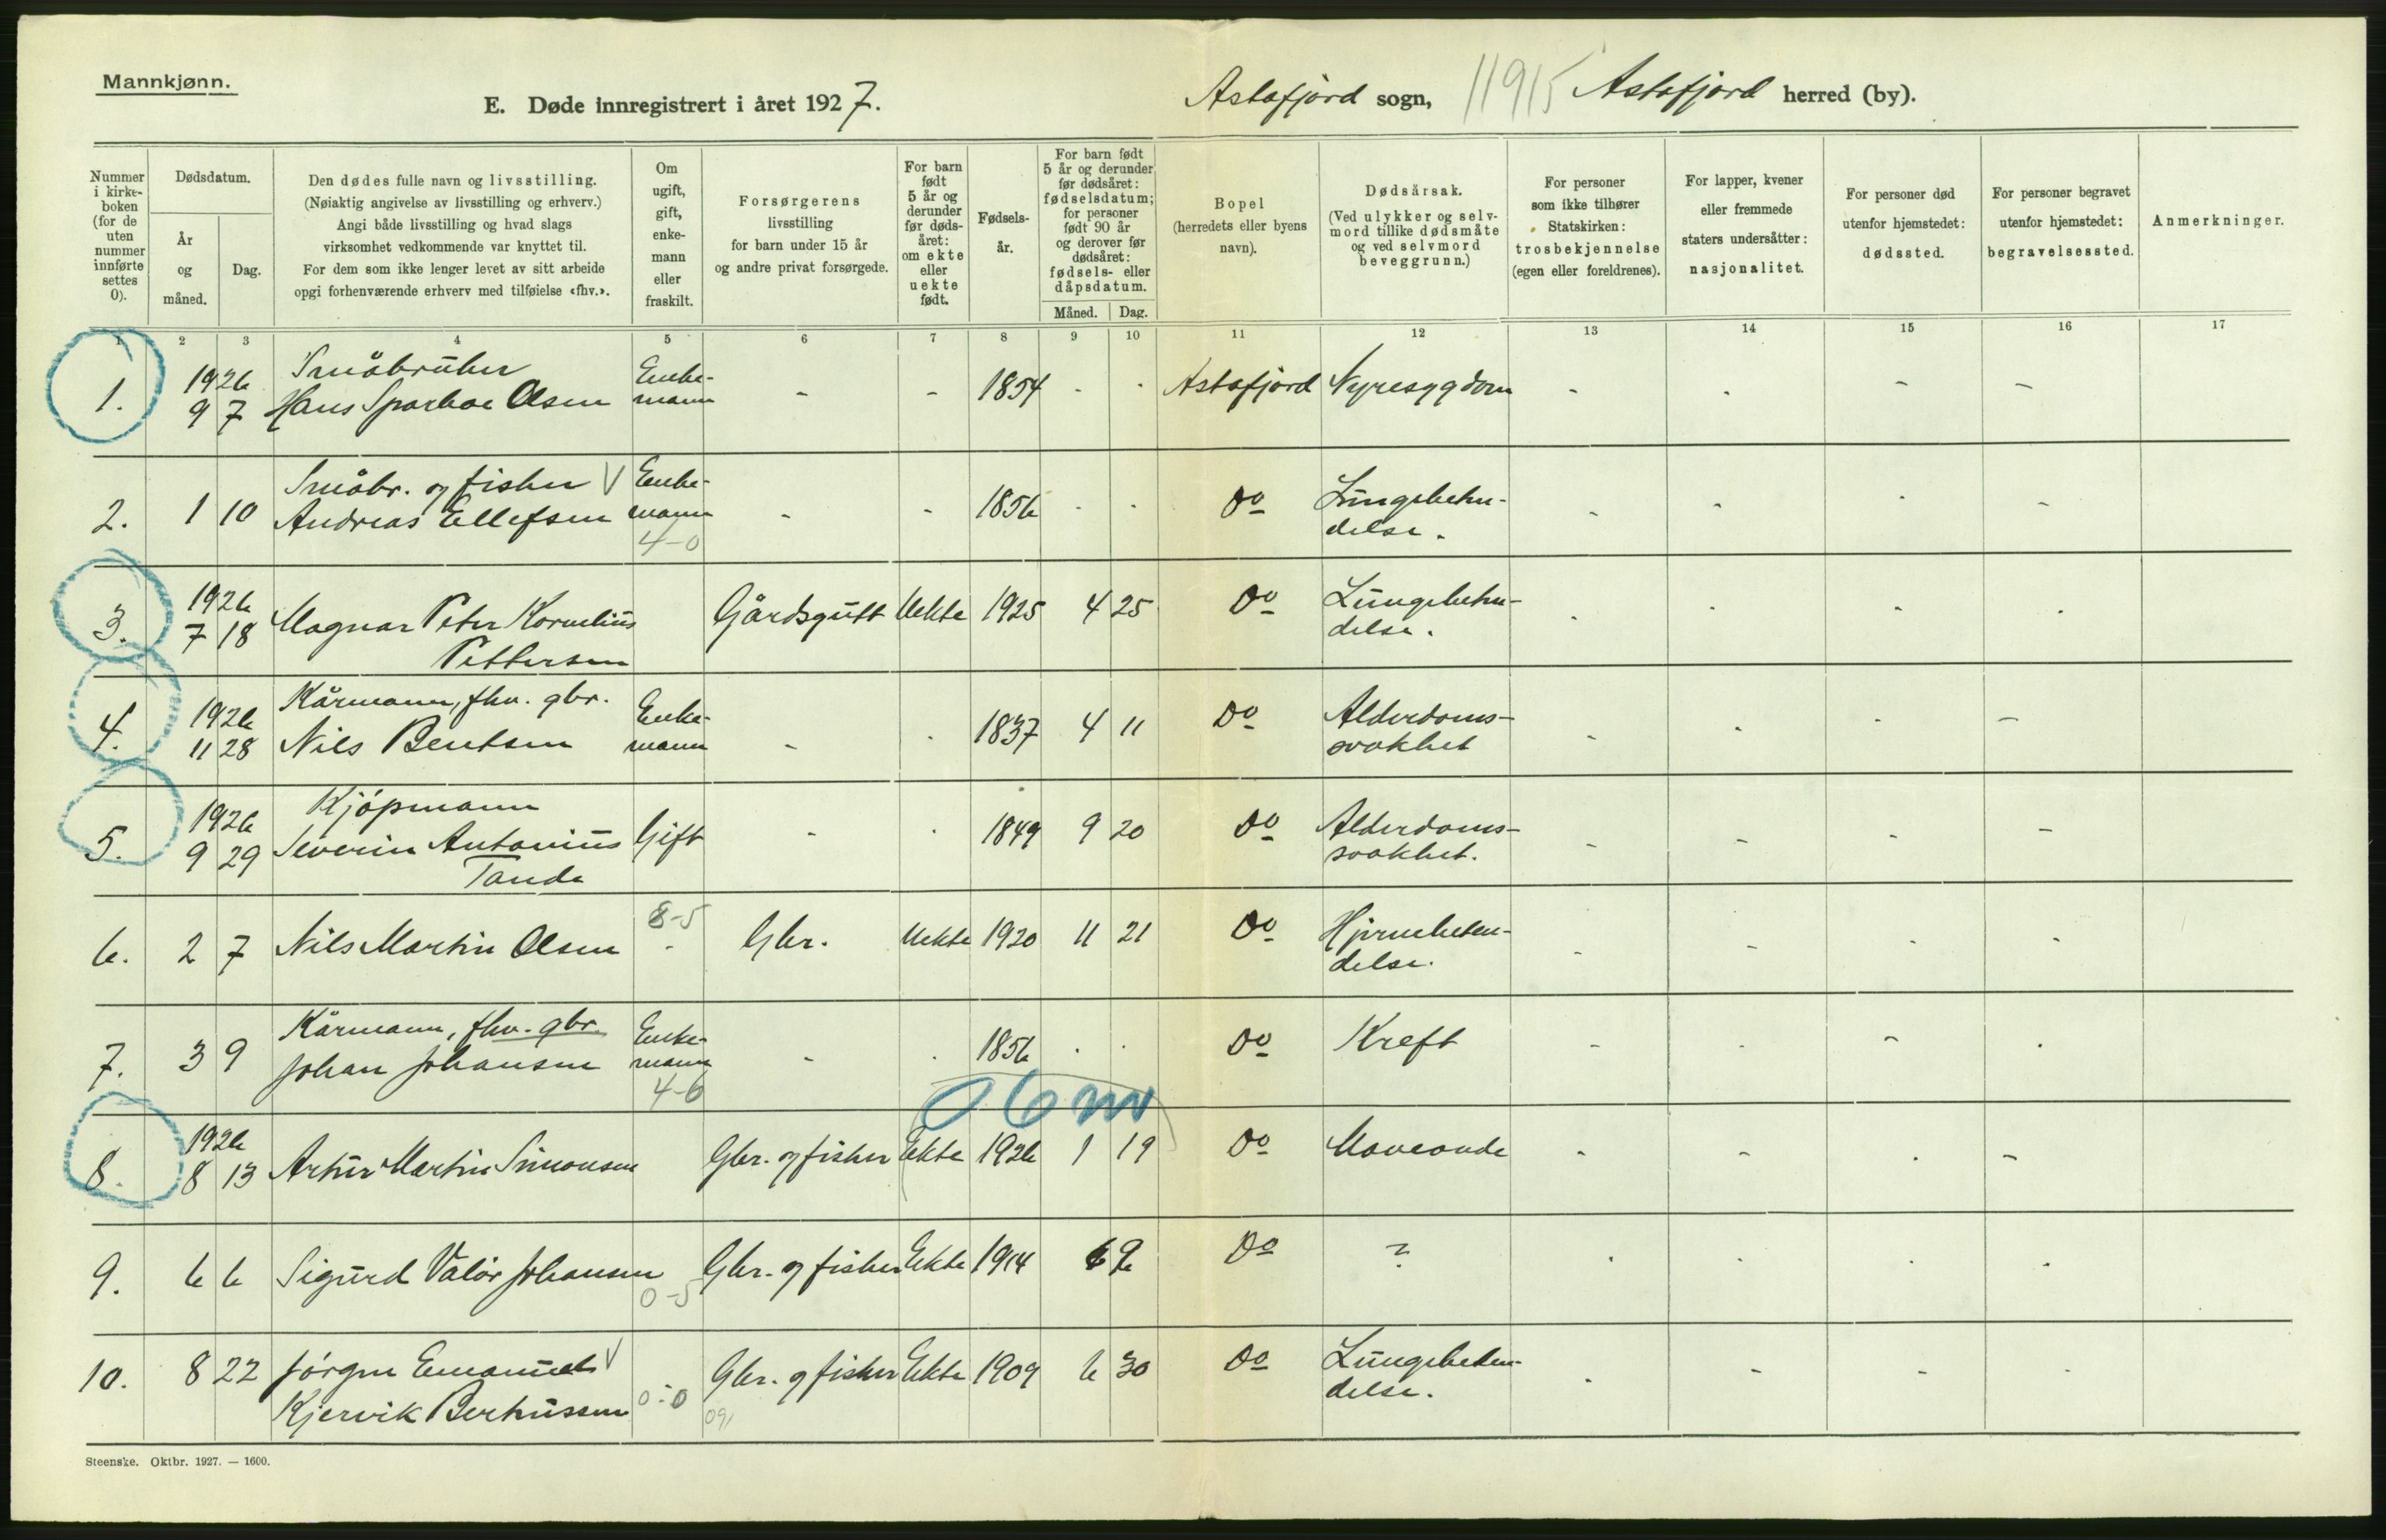 Mannkjønn.
E. Døde innregistrert i året 1927.
Astafjord sogn, 11915 Astafjord herred (by).
Nummer i kirke- boken (for de uten nummer innførte settes 0).
Dødsdatum.
År og måned.
Dag.
Den dødes fulle navn og livsstilling.
(Nøiaktig angivelse av livsstilling og erhverv.)
Angi både livsstilling og hvad slags
virksomhet vedkommende var knyttet til.
For dem som ikke lenger levet av sitt arbeide
opgi forhenværende erhverv med tilføielse «fhv.».
Om ugift, gift, enke- mann eller fraskilt.
Forsørgerens
livsstilling
for barn under 15 år
og andre privat forsørgede.
For barn født 5 år og derunder før døds- året: om ekte eller uekte født.
Fødsels- år.
For barn født 5 år og derunder før dødsåret: fødselsdatum; for personer født 90 år og derover før dødsåret: fødsels- eller dåpsdatum.
Måned. Dag.
Bopel
(herredets eller byens
navn).
Dødsårsak.
(Ved ulykker og selv-
mord tillike dødsmåte
og ved selvmord
beveggrunn.)
For personer
som ikke tilhører
Statskirken:
trosbekjennelse
(egen eller foreldrenes).
For lapper, kvener
eller fremmede
staters undersåtter:
nasjonalitet.
For personer død
utenfor hjemstedet:
dødssted.
For personer begravet
utenfor hjemstedet:
begravelsessted.
Anmerkninger.
1 2 3 4 5 6 7 8 9 10 11 12 13 14 15 16 17
1926 Småbruker Enke-
1. 9 7 Hans Sparboe Olsen mann - - 1854 - - Astafjord Nyresygdom - - - -
Småbr. og fisker V Enke-
2. 1 10 Andreas Ellefsen mann - - 1856 - - Do Lungebeten-
4-0 delse.
1926
3. 7 18 Magnar Peter Kornelius Gårdsgutt Uekte 1925 4 25 Do Lungebeten-
Pettersen delse.
1926 Kårmann, fhv. gbr. Enke-
4. 11 28 Nils Bentsen mann - - 1837 4 11 Do Alderdoms-
svakhet
1926 Kjøpmann
5. 9 29 Severin Antonius Gift - - 1849 9 20 Do Alderdoms-
Tande svakhet.
8-5
6. 2 7 Nils Martin Olsen - Gbr. Uekte 1920 11 21 Do Hjernebeten-
delse.
Kårmann, fhv. gbr. Enke-
7. 3 9 Johan Johansen mann - - 1856 - - Do Kreft - - - -
4-6
06m
1926
8. 8 13 Artur Martin Simonsen Gbr. og fisker Ekte 1926 1 19 Do Maveonde - - - -
9. 6 6 Sigurd Valør Johansen Gbr. og fisker Ekte 1914 6 9 Do ?
0-5
10. 8 22 Jørgen Emanuel V Gbr. og fisker Ekte 1909 6 30 Do Lungebeten-
Kjervik Berthussen 0-0 091 delse.
Steenske. Oktbr. 1927. — 1600.